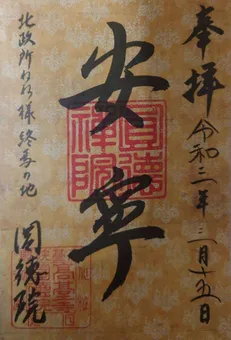 奉拝 令和二年三月十五日
安寧
圓徳禅院
北政所ねね様 終焉の地
圓徳院